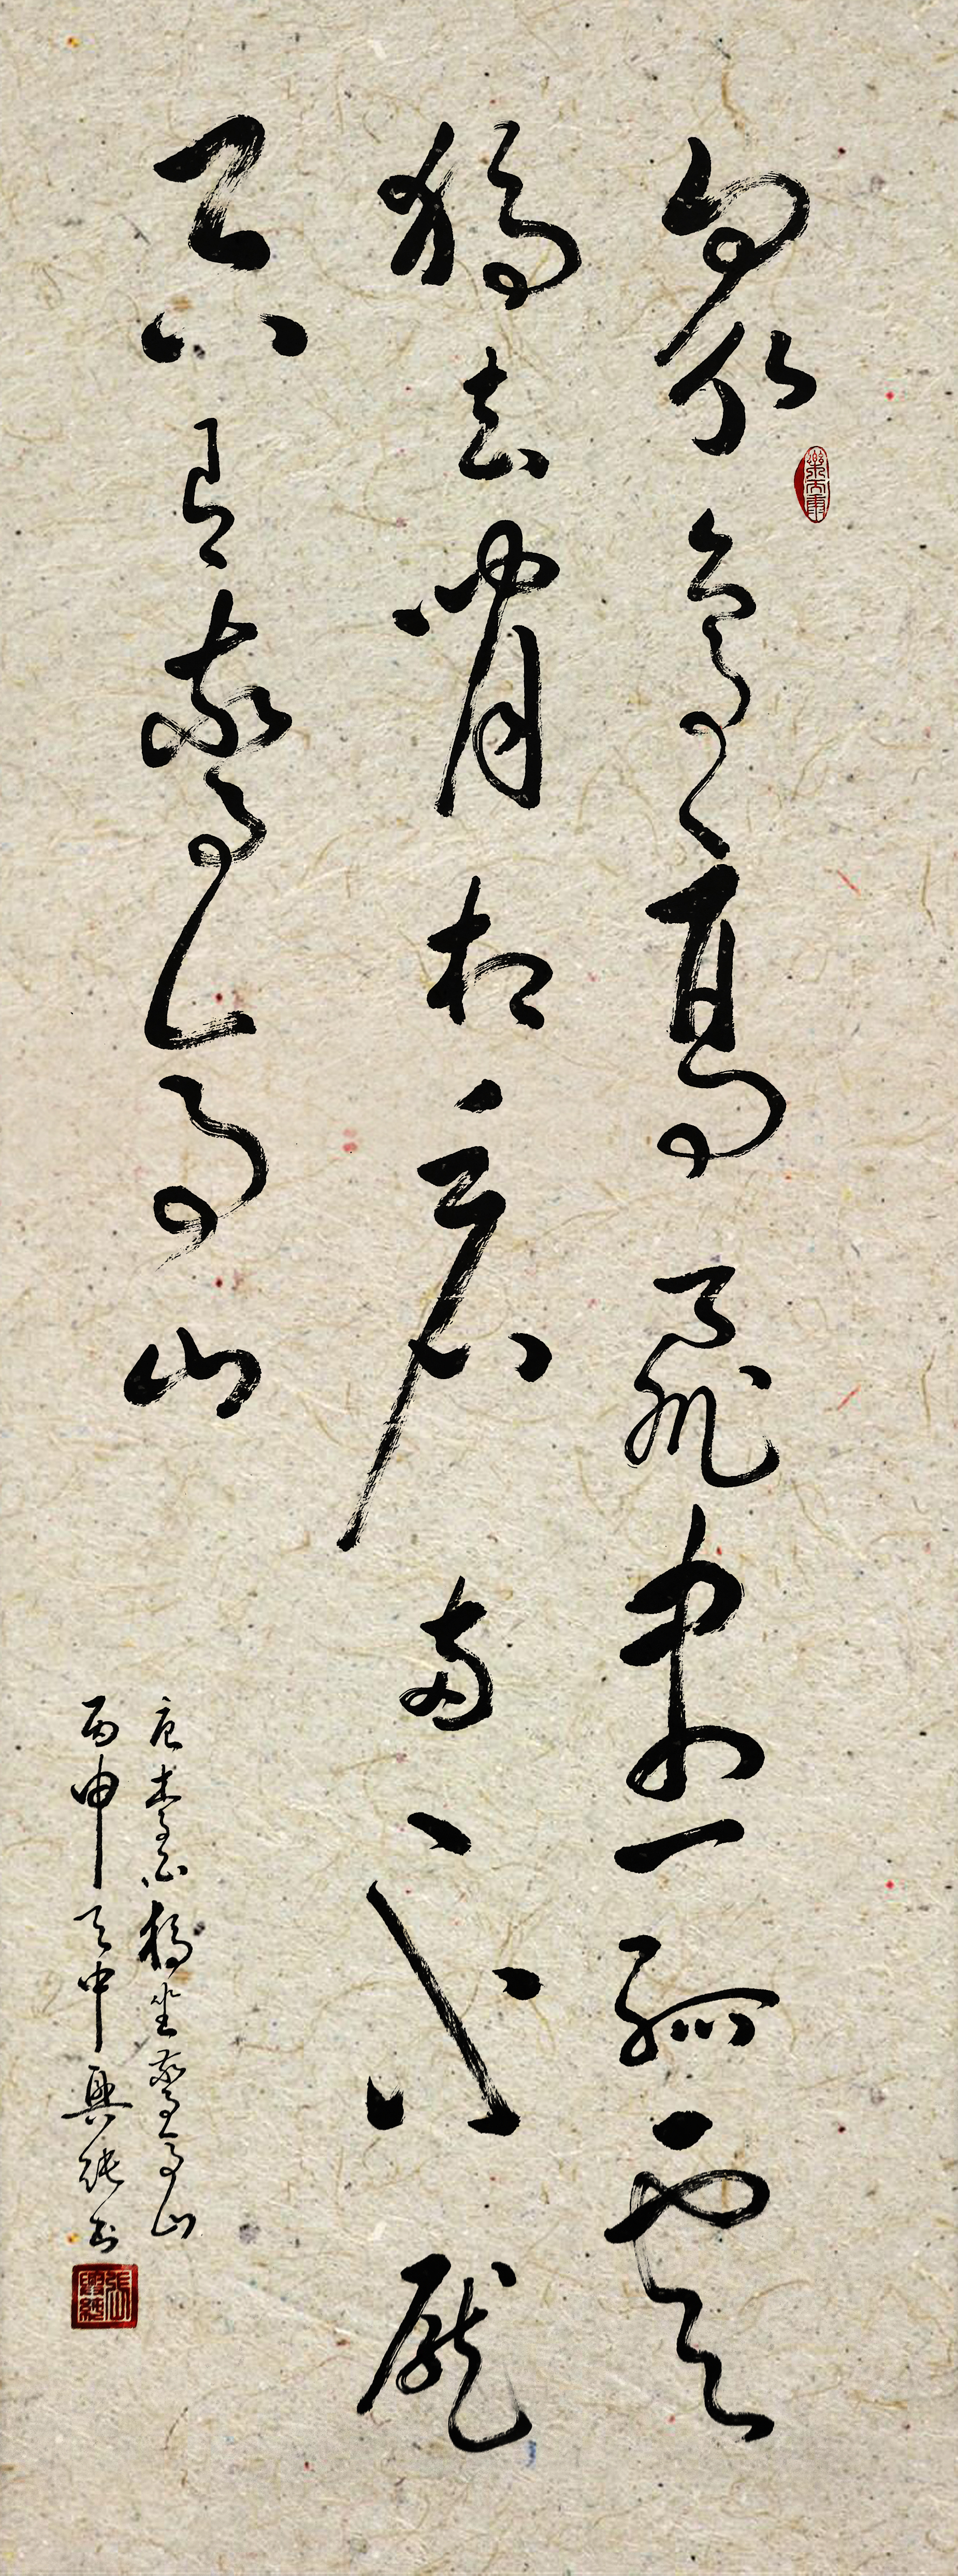 眾鳥高飛盡孤雲
獨去閒相看兩不厭
只有敬亭山
唐李白獨坐敬亭山
丙申天中興純书